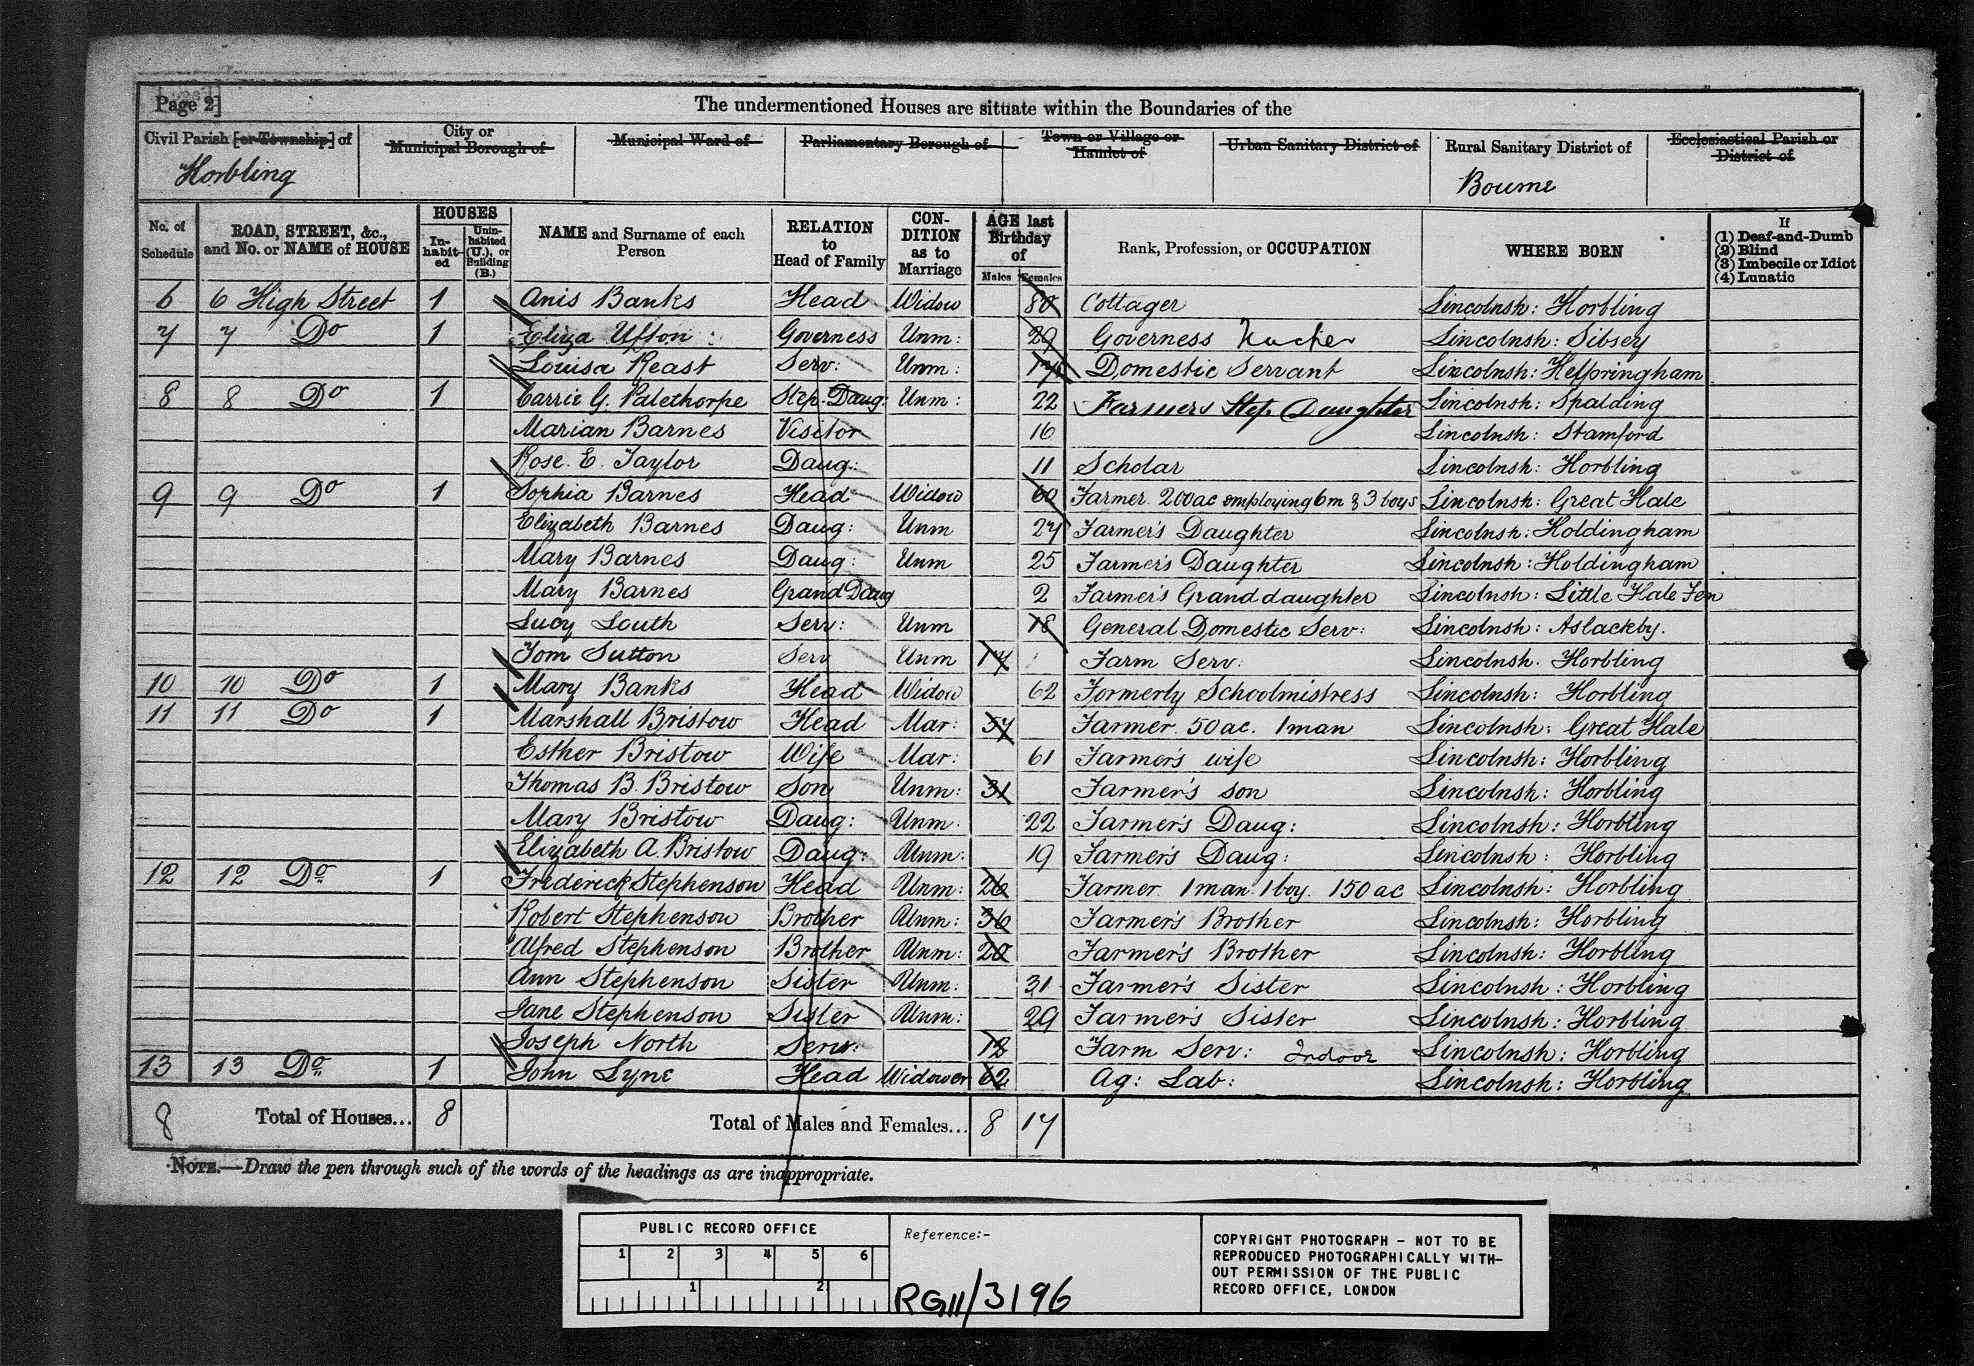 Page 2]
The undermentioned Houses are situate within the Boundaries of the
Civil Parish [or Township] of
City or Municipal Borough of
Municipal Ward of
Parliamentary Borough of
Town or Village or Hamlet of
Urban Sanitary District of
Rural Sanitary District of
Ecclesiastical Parish or District of
Horbling
Bourne
No. of Schedule
ROAD, STREET, &c., and No. or NAME of HOUSE
HOUSES
Inhabited
Uninhabited (U.), or Building (B.)
NAME and Surname of each Person
RELATION to Head of Family
CONDITION as to Marriage
AGE last Birthday of
Males
Females
Rank, Profession, or OCCUPATION
WHERE BORN
If
(1) Deaf-and-Dumb
(2) Blind
(3) Imbecile or Idiot
(4) Lunatic
6 6 High Street 1 Anis Banks Head Widow 80 Cottager Lincolnsh: Horbling
7 7 Do 1 Eliza Ufton Governess Unm: 29 Governess Teacher Lincolnsh: Sibsey
Louisa Reast Serv: Unm: 17 Domestic Servant Lincolnsh: Helpringham
8 8 Do 1 Carrie G. Palethorpe Step-Daug: Unm: 22 Farmers Step Daughter Lincolnsh: Spalding
Marian Barnes Visitor 16 Lincolnsh: Stamford
Rose. E. Taylor Daug: 11 Scholar Lincolnsh: Horbling
9 9 Do 1 Sophia Barnes Head Widow 60 Farmer 200 ac employing 6 m & 3 boys Lincolnsh: Great Hale
Elizabeth Barnes Daug: Unm 27 Farmer's Daughter Lincolnsh: Holdingham
Mary Barnes Daug: Unm 25 Farmer's Daughter Lincolnsh: Holdingham
Mary Barnes Grand Daug 2 Farmer's Grand daughter Lincolnsh: Little Hale Fen
Lucy Louth Serv: Unm 18 General Domestic Serv: Lincolnsh: Aslackby.
Tom Sutton Serv Unm 17 Farm Serv: Lincolnsh: Horbling
10 10 Do 1 Mary Banks Head Widow 62 Formerly Schoolmistress Lincolnsh: Horbling
11 11 Do 1 Marshall Bristow Head Mar: 57 Farmer 50 ac. 1 man Lincolnsh: Great Hale
Esther Bristow Wife Mar: 61 Farmer's wife Lincolnsh: Horbling
Thomas B. Bristow Son Unm: 31 Farmer's son Lincolnsh: Horbling
Mary Bristow Daug: Unm: 22 Farmer's Daug: Lincolnsh: Horbling
Elizabeth A. Bristow Daug: Unm: 19 Farmer's Daug: Lincolnsh: Horbling
12 12 Do 1 Frederick Stephenson Head Unm: 26 Farmer 1 man 1 boy. 150 ac Lincolnsh: Horbling
Robert Stephenson Brother Unm: 36 Farmer's Brother Lincolnsh: Horbling
Alfred Stephenson Brother Unm: 20 Farmer's Brother Lincolnsh: Horbling
Ann Stephenson Sister Unm: 31 Farmer's Sister Lincolnsh: Horbling
Jane Stephenson Sister Unm: 29 Farmer's Sister Lincolnsh: Horbling
Joseph North Serv: 12 Farm Serv: Indoor Lincolnsh: Horbling
13 13 Do 1 John Lyne Head Widower 62 Ag: Lab: Lincolnsh: Horbling
8 Total of Houses... 8 Total of Males and Females... 8 17
NOTE.—Draw the pen through such of the words of the headings as are inappropriate.
PUBLIC RECORD OFFICE
1 2 3 4 5 6
1 2
Reference:-
RG11/3196
COPYRIGHT PHOTOGRAPH - NOT TO BE
REPRODUCED PHOTOGRAPHICALLY WITH-
OUT PERMISSION OF THE PUBLIC
RECORD OFFICE, LONDON